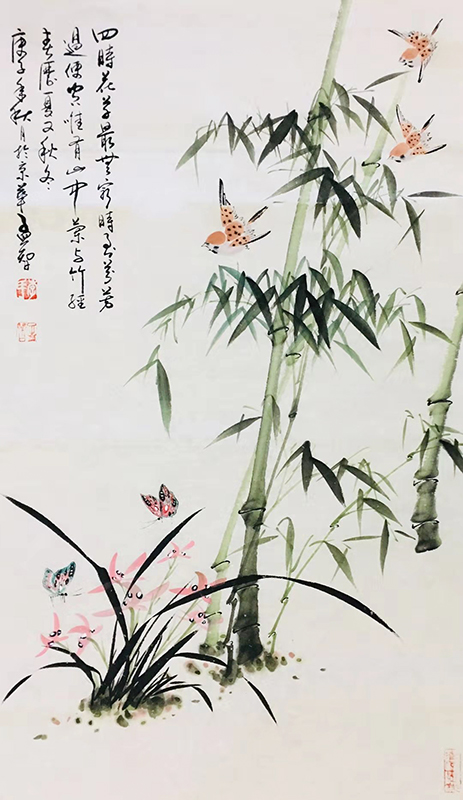 四時花草最無窮時到芬芳
過便空唯有山中蘭与竹經
春歷夏又秋冬
庚子年秋月於京華